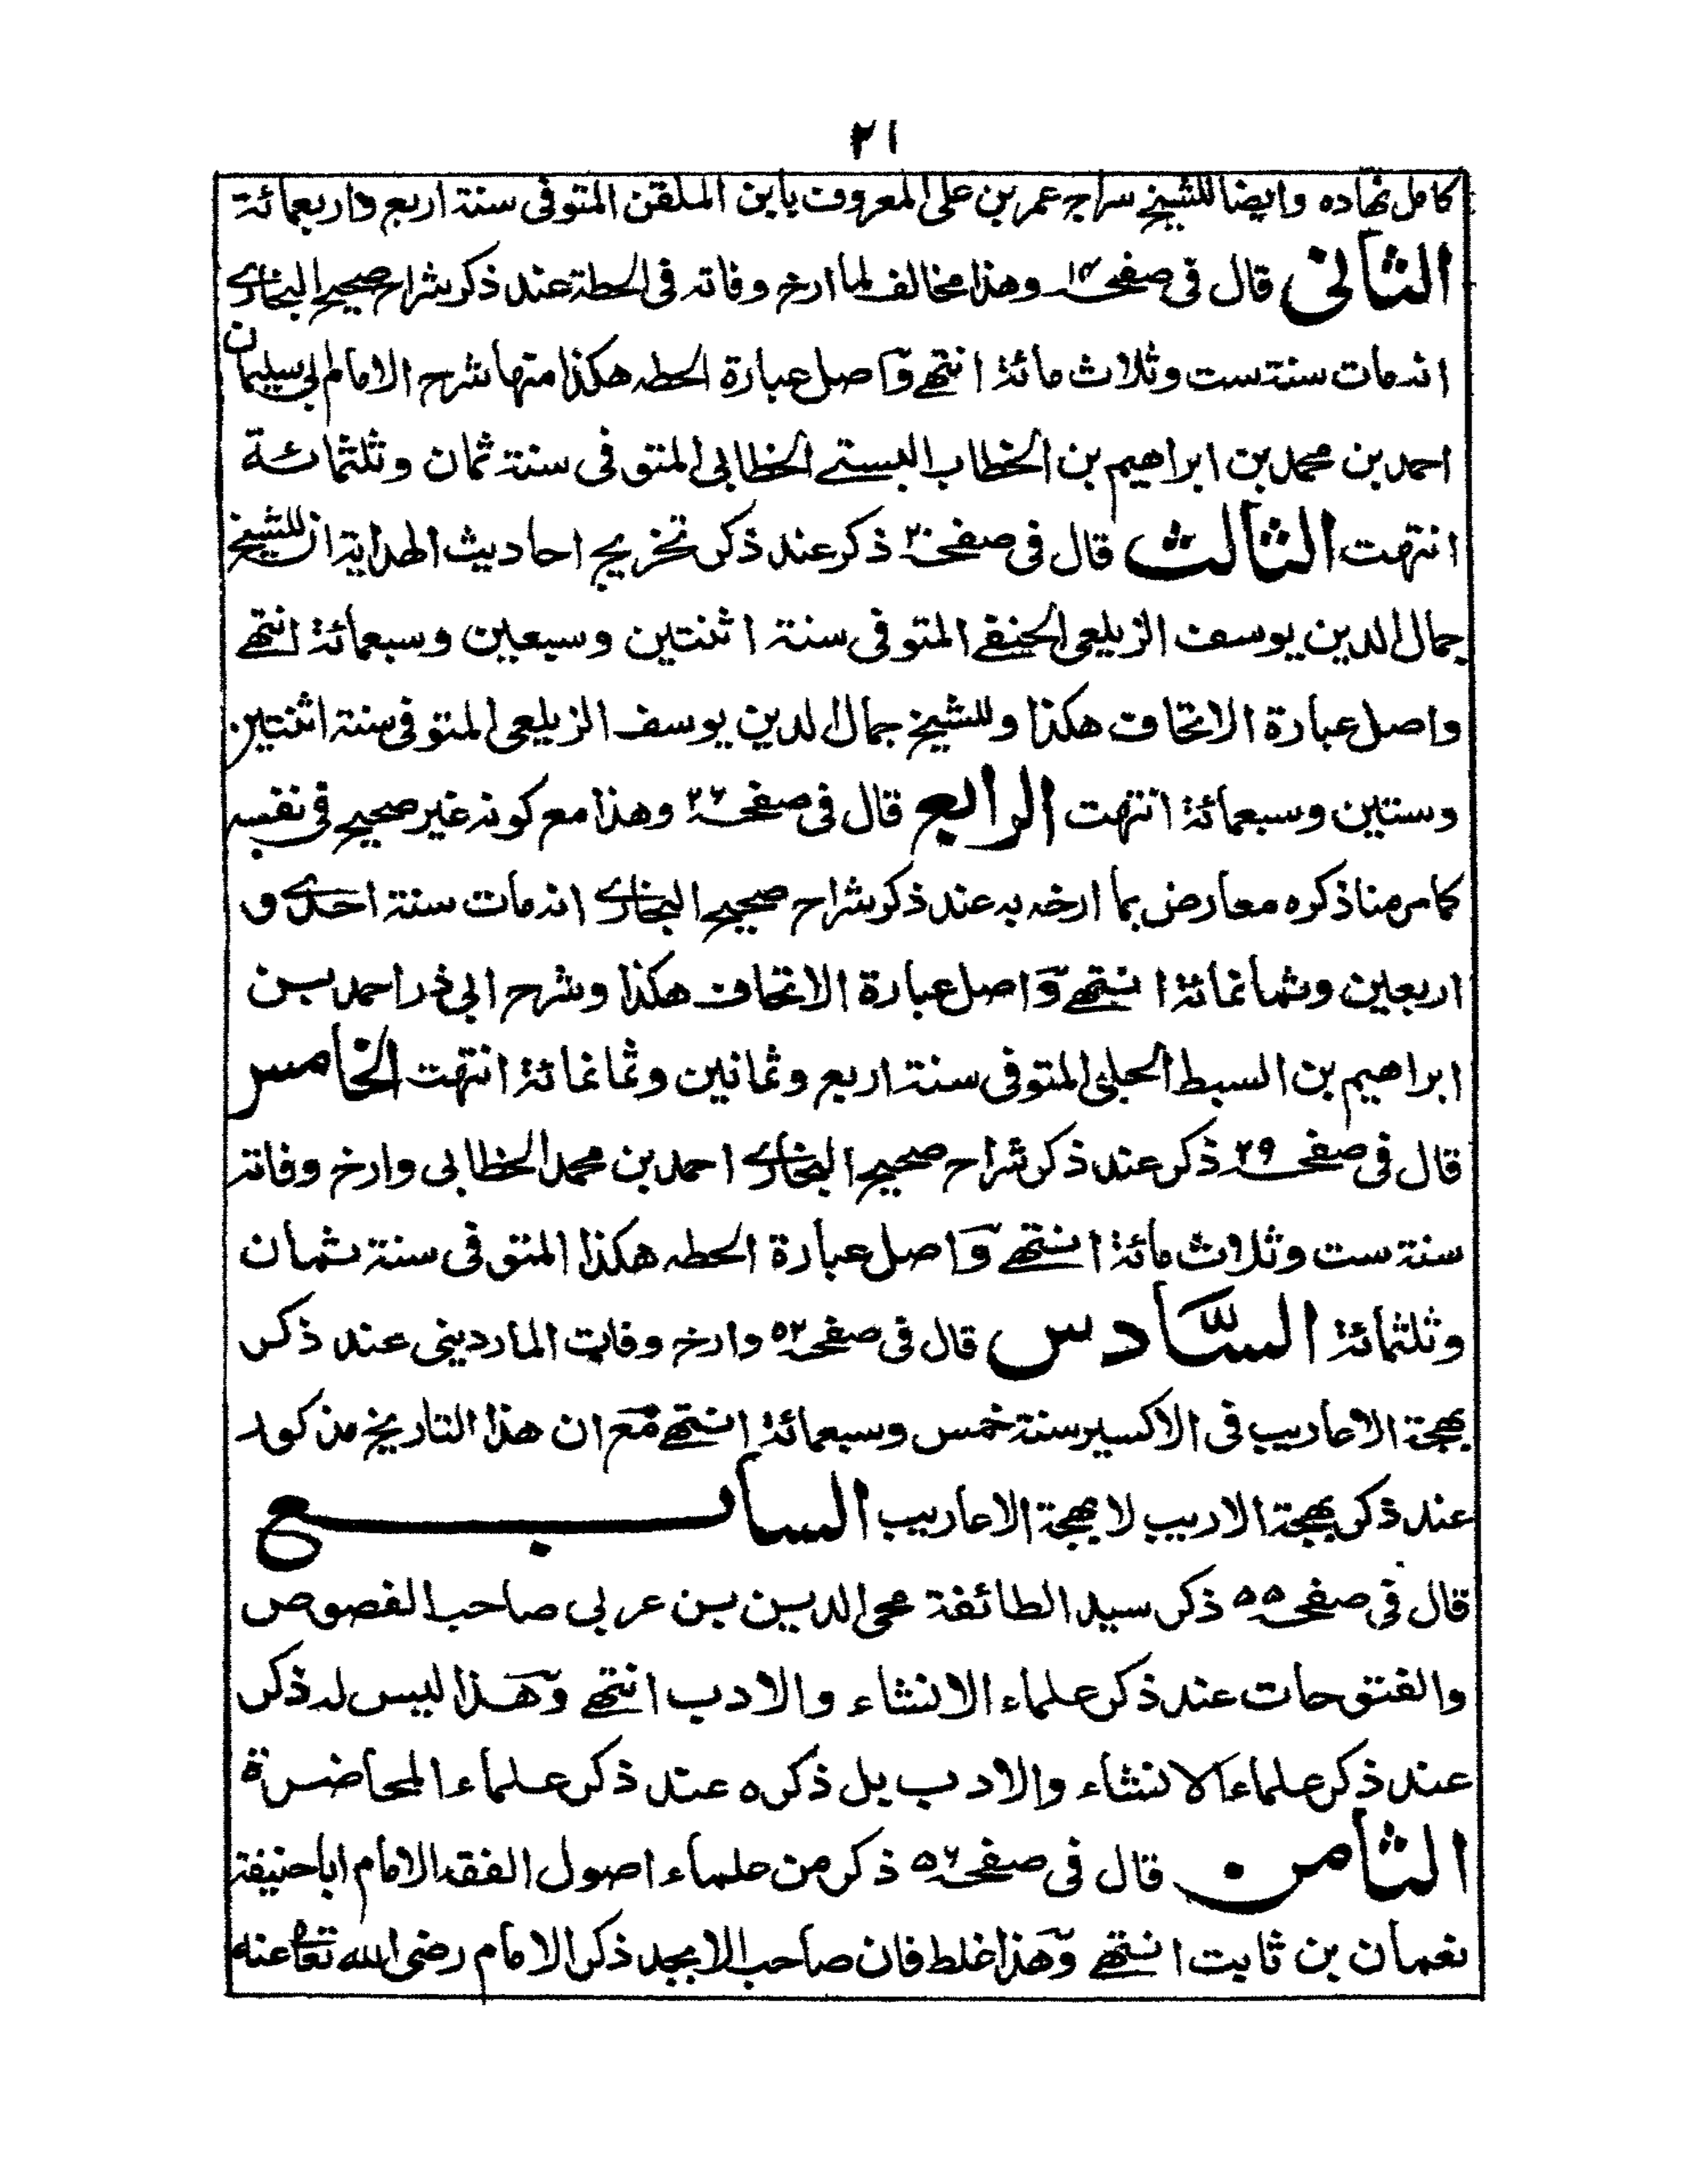 ٢١
كامل نهاده وايضا للشيخ سراج عمر بن على المعروف بابن الملقن المتوفى سنة اربع واربعمائة
الثانى قال فى صفحـ١٤ـة وهذا مخالف لما ارخ وفاته فى الحطة عند ذكر شراح صحيح البخارى
انه مات سنة ست وثلاث مائة انتهى واصل عبارة الحطه هكذا منها شرح الامام ابى سليمان
احمد بن محمد بن ابراهيم بن الخطاب البستى الخطابى المتوفى سنة ثمان وثلثمائة
انتهت الثالث قال فى صفحة٢٠ ذكر عند ذكر تخريج احاديث الهداية ان للشيخ
جمال الدين يوسف الزيلعى الحنفى المتوفى سنة اثنتين وسبعين وسبعمائة انتهى
واصل عبارة الاتحاف هكذا وللشيخ جمال الدين يوسف الزيلعى المتوفى سنة اثنتين
وستين وسبعمائة انتهت الرابع قال فى صفحة ٢٦ وهذا مع كونه غير صحيح فى نفسه
كما مر منا ذكره معارض بما ارخه به عند ذكر شراح صحيح البخارى انه مات سنة احدى و
اربعين وثمانمائة انتهى واصل عبارة الاتحاف هكذا وشرح ابى ذر احمد بن
ابراهيم بن السبط الحلبى المتوفى سنة اربع وثمانين وثمانمائة انتهت الخامس
قال فى صفحة ٢٩ ذكر عند ذكر شراح صحيح البخارى احمد بن محمد الخطابى وارخ وفاته
سنة ست وثلاث مائة انتهى واصل عبارة الحطه هكذا المتوفى سنة ثمان
وثلثمائة السَّادس قال فى صفحة ٥٢ وارخ وفات الماردينى عند ذكر
بهجة الاعاريب فى الاكسير سنة خمس وسبعمائة انتهى مع ان هذا التاريخ مذكور
عند ذكر بهجة الاريب لا بهجة الاعاريب السابع
قال فى صفحة ٥٥ ذكر سيد الطائفة محى الدين بن عربى صاحب الفصوص
والفتوحات عند ذكر علماء الانشاء والادب انتهى وهذا ليس له ذكر
عند ذكر علماء الانشاء والادب بل ذكره عند ذكر علماء المحاضرة
الثامن قال فى صفحة ٥٦ ذكر من علماء اصول الفقه الامام اباحنيفة
نعمان بن ثابت انتهى وهذا غلط فان صاحب الابجد ذكر الامام رضى الله تعالى عنه